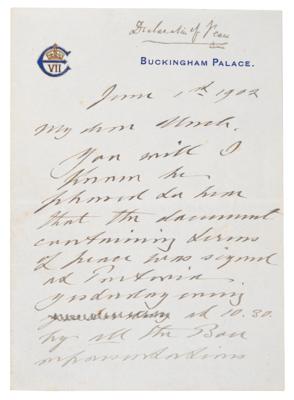 Declaration of Peace
E VII
BUCKINGHAM PALACE.
June 1st 1902
My dear
You will I
know be
pleased to hear
that the document
containing terms
of peace was signed
at Pretoria
yesterday evening
at 10.30.
by all the Boer
representatives